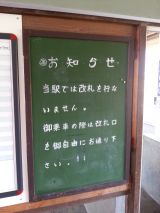 お知らせ
当駅では改札を行な
いません。
御乗車の際は改札口
を御自由にお通り下
さい。!!